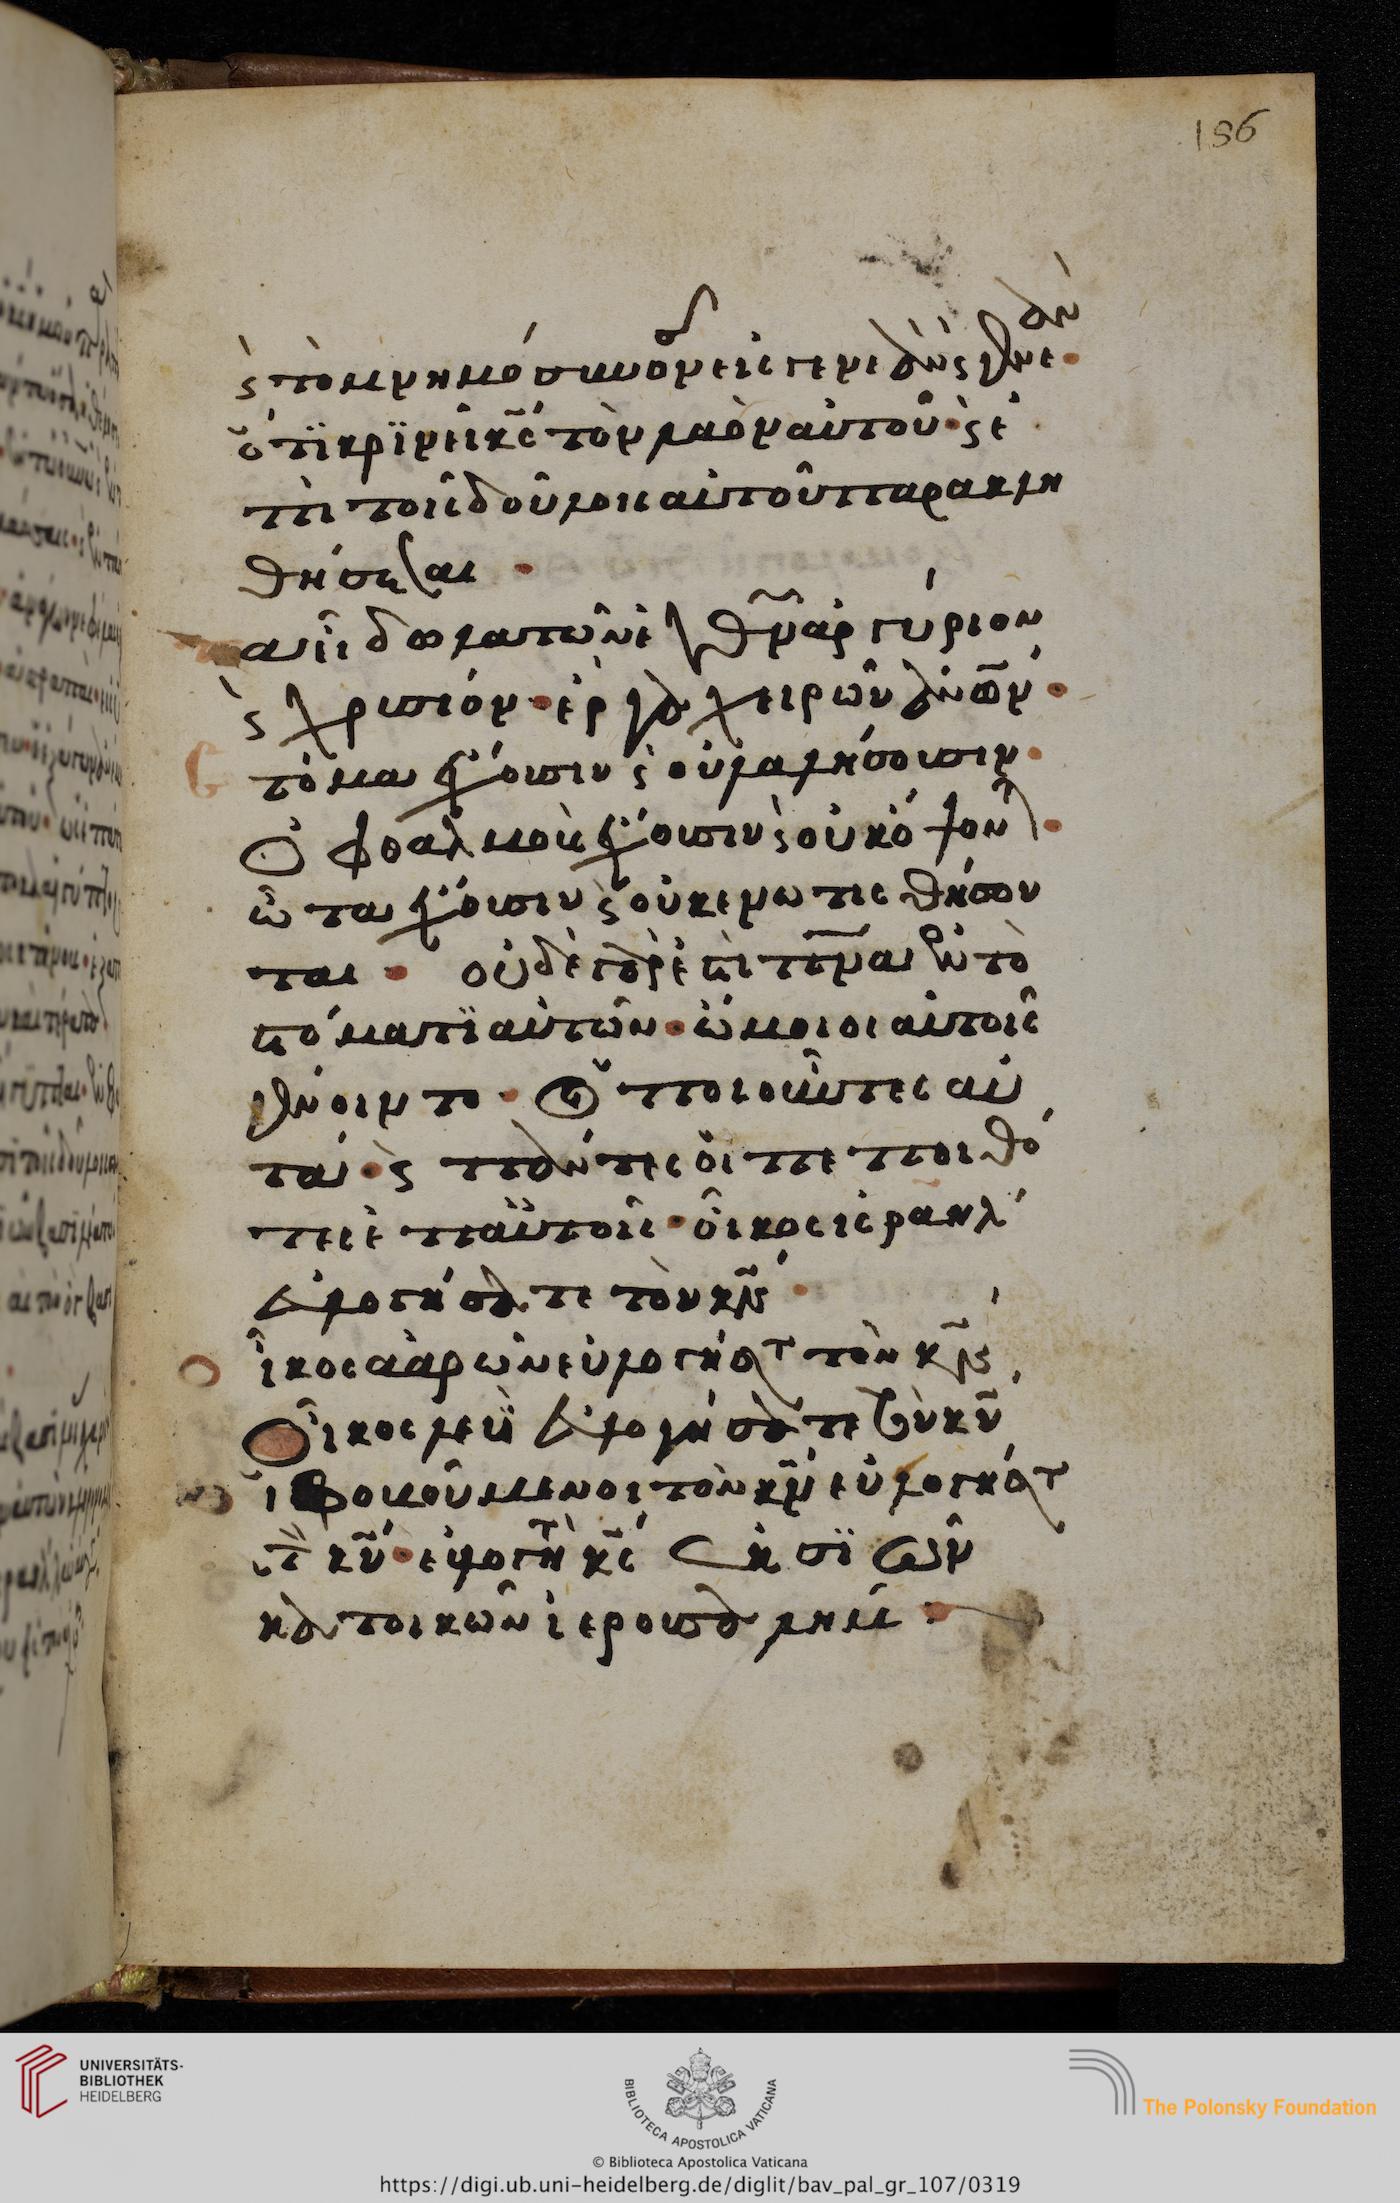 156
ϛ τὸ μνημόσυνόν εἰς γενεὰν ϛ γενεάν
ὅτι κρινεῖ κ̅ς τὸν λαὸν αὐτοῦ· ϛ ἐ
πὶ τοῖς δούλοις αὐτοῦ παρακλη
θήσεται
εἴδωλα τῶν ἐθνῶν ἀργύριον
ϛ χρυσίον· ἔργα χειρῶν ἀνων·
τόμα ἔχουσιν ϛ οὐ λαλήσουσιν·
Ὀφθαλμοὺς ἔχουσιν ϛ οὐκ ὄψον·
ὦτα ἔχουσιν ϛ οὐκ ἐνωτισθήσον
ται· οὐδὲ γάρ ἐστι πνα ἐν τῷ
στόματι αὐτῶν· ὅμοιοι αὐτοῖς
γένοιντο· οἱ ποιοῦντες αὐ
τά· ϛ πάντες οἱ πεποιθό
τες ἐπ αὐτοῖς· οἶκος ιἐραηλ
εὐλογήσατε τὸν κν
ἶκος ἀαρὼν εὐλογήσατ τὸν κν
Οἶκος λευῒ εὐλογήσατε τὸν κν
ἱ φοβούμενοι τὸν κν εὐλογήσατ
τ κν· εὐλογητ κς ἐκ σιὼν
κατοικῶν ἱερουσαλημ·
UNIVERSITÄTS-
BIBLIOTHEK
HEIDELBERG
BIBLIOTECA APOSTOLICA VATICANA
The Polonsky Foundation
© Biblioteca Apostolica Vaticana
https://digi.ub.uni-heidelberg.de/diglit/bav_pal_gr_107/0319